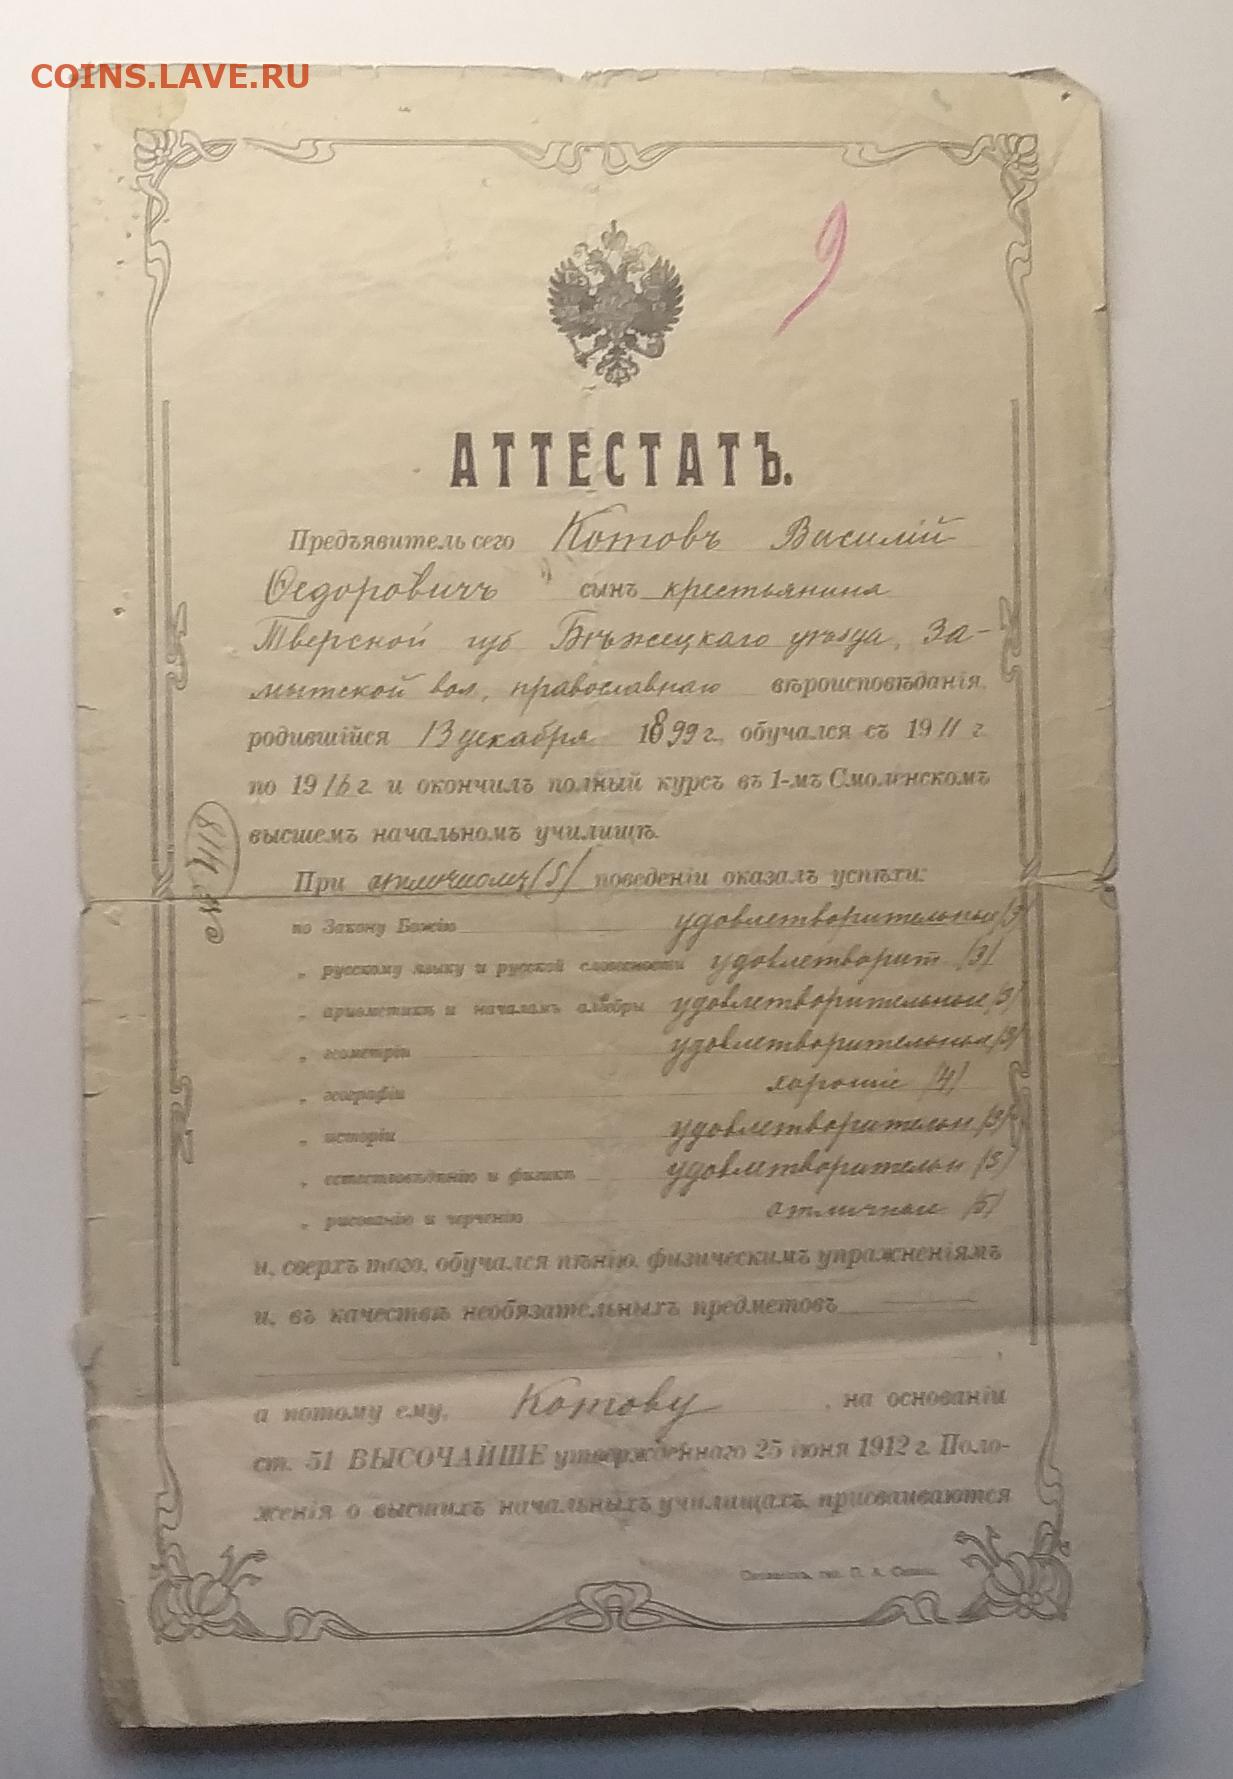 COINS.LAVE.RU
9
АТТЕСТАТЪ.
Предъявитель сего Котовъ Василій
Ѳедоровичъ сынъ крестьянина
Тверской губ Бѣжецкаго уѣзда, За-
мытской вол, православнаго вѣроисповѣданія,
родившійся 13 декабря 1899 г., обучался съ 1911 г
по 1916 г. и окончилъ полный курсъ въ 1-мъ Смоленскомъ
высшемъ начальномъ училищѣ.
При отличномъ (5) поведеніи оказалъ успѣхи:
по Закону Божію удовлетворительные (3
„ русскому языку и русской словесности удовлетворит (3)
„ ариѳметикѣ и началамъ алгебры удовлетворительные (3)
„ геометріи удовлетворительные (3)
„ географіи хорошіе (4)
„ исторіи удовлетворительн (3)
„ естествовѣдѣнію и физикѣ удовлетворительн (3)
„ рисованію и черченію отличные (5)
и, сверхъ того, обучался пѣнію, физическимъ упражненіямъ
и, въ качествѣ необязательныхъ предметовъ
а потому ему, Котову, на основаніи
ст. 51 ВЫСОЧАЙШЕ утвержденнаго 25 іюня 1912 г. Поло-
женія о высшихъ начальныхъ училищахъ, присваиваются